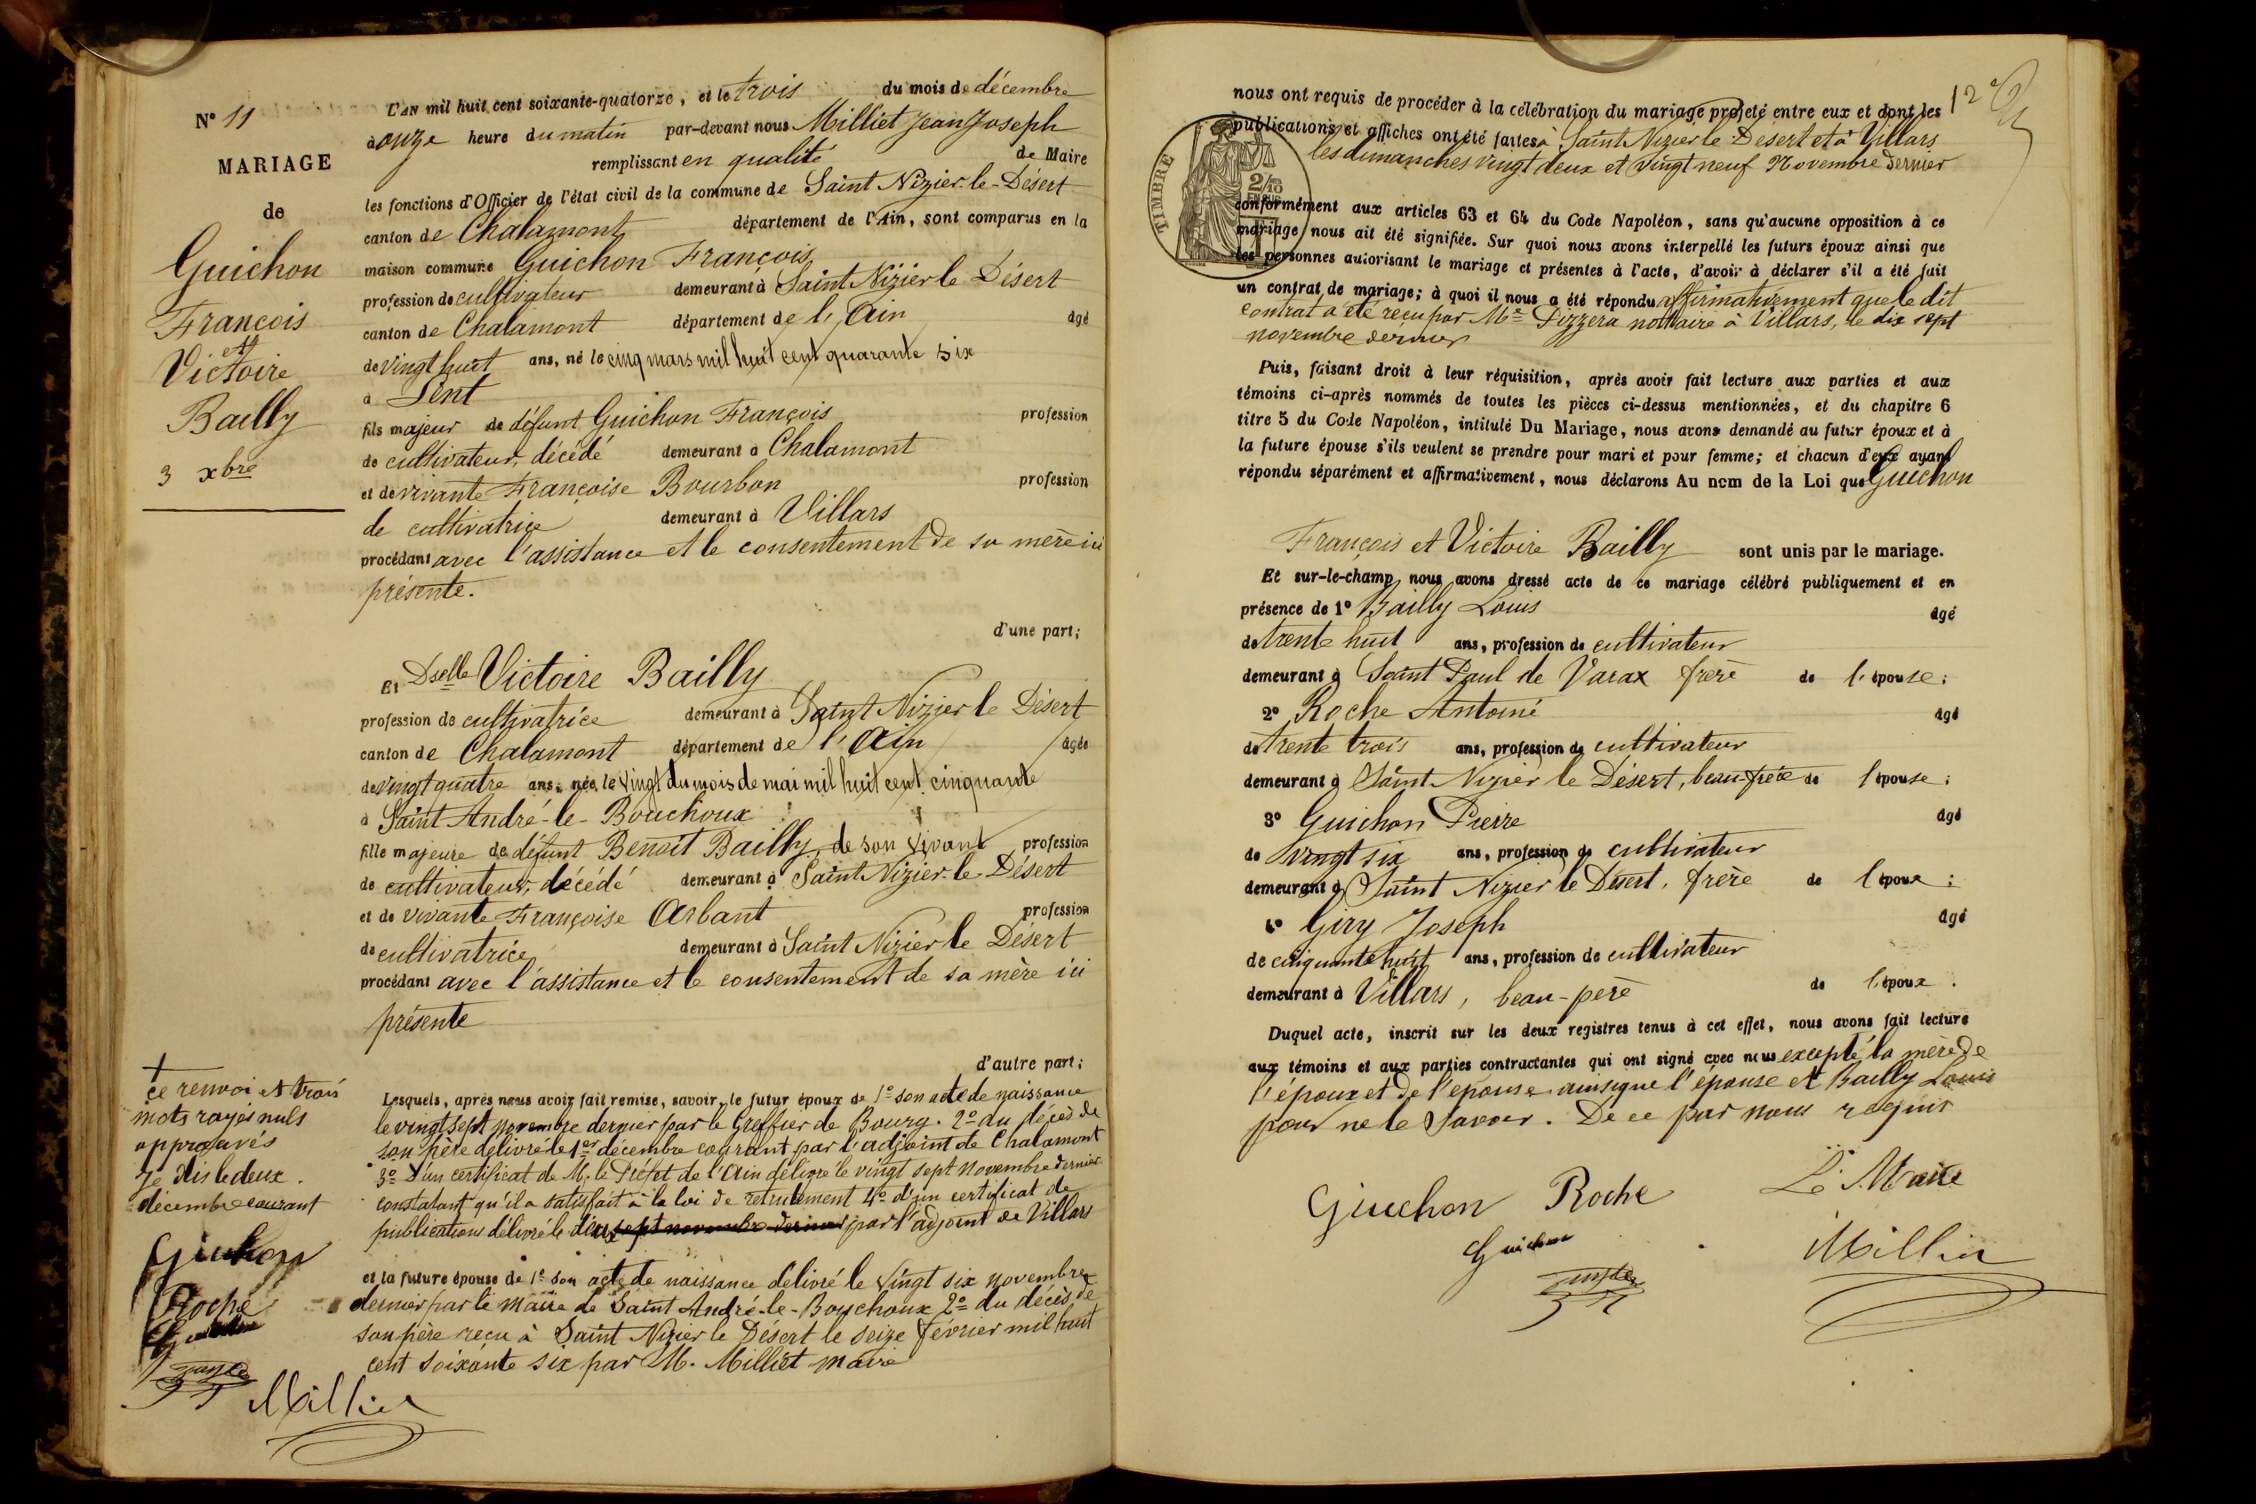 N° 11
MARIAGE
de
Guichon
François
et
Victoire
Bailly
3 xbre
L'an mil huit cent soixante-quatorze, et le trois du mois de décembre
à onze heure du matin par-devant nous Milliet Jean Joseph
remplissant en qualité de Maire
les fonctions d'Officier de l'état civil de la commune de Saint Nizier-le-Désert
canton de Chalamont département de l'Ain, sont comparus en la
maison commune Guichon François
profession de cultivateur demeurant à Saint Nizier le Désert
canton de Chalamont département de l'Ain âgé
de vingt huit ans, né le cinq mars mil huit cent quarante six
à Lent
fils majeur de défunt Guichon François profession
de cultivateur, décédé demeurant à Chalamont
et de vivante Françoise Bourbon profession
de cultivatrice demeurant à Villars
procédant avec l'assistance et le consentement de sa mère ici
présente.
d'une part;
Et Dselle Victoire Bailly
profession de cultivatrice demeurant à Saint Nizier le Désert
canton de Chalamont département de l'Ain âgée
de vingt quatre ans, née le vingt du mois de mai mil huit cent cinquante
à Saint André-le-Bouchoux
fille majeure de défunt Benoît Bailly, de son vivant profession
de cultivateur, décédé demeurant à Saint Nizier-le-Désert
et de vivante Françoise Arbant profession
de cultivatrice demeurant à Saint Nizier le Désert
procédant avec l'assistance et le consentement de sa mère ici
présente
d'autre part;
Lesquels, après nous avoir fait remise, savoir, le futur époux de 1° son acte de naissance
le vingt sept novembre dernier par le Greffier de Bourg. 2° du décès de
son père délivré le 1er décembre courant par l'adjoint de Chalamont
3° d'un certificat de M. le Préfet de l'Ain délivré le vingt sept novembre dernier
constatant qu'il a satisfait à la loi de recrutement 4° d'un certificat de
publications délivré le deux sept novembre dernier par l'adjoint de Villars
et la future épouse de 1° son acte de naissance délivré le vingt six novembre
dernier par le maire de Saint André-le-Bouchoux 2° du décès de
son père reçu à Saint Nizier le Désert le seize février mil huit
cent soixante six par M. Milliet maire
+
ce renvoi et trois
mots rayés nuls
approuvés
Je dis le deux
décembre courant
Guichon
Roche
Guichon
Milliet
12
TIMBRE
2/10
EN SUS
nous ont requis de procéder à la célébration du mariage projeté entre eux et dont les
publications et affiches ont été faites à Saint Nizier le Désert et à Villars
les dimanches vingt deux et vingt neuf Novembre dernier
conformément aux articles 63 et 64 du Code Napoléon, sans qu'aucune opposition à ce
mariage nous ait été signifiée. Sur quoi nous avons interpellé les futurs époux ainsi que
les personnes autorisant le mariage et présentes à l'acte, d'avoir à déclarer s'il a été fait
un contrat de mariage; à quoi il nous a été répondu affirmativement que le dit
contrat a été reçu par Me Pizzera nottaire à Villars, le dix sept
novembre dernier
Puis, faisant droit à leur réquisition, après avoir fait lecture aux parties et aux
témoins ci-après nommés de toutes les pièces ci-dessus mentionnées, et du chapitre 6
titre 5 du Code Napoléon, intitulé Du Mariage, nous avons demandé au futur époux et à
la future épouse s'ils veulent se prendre pour mari et pour femme; et chacun d'eux ayant
répondu séparément et affirmativement, nous déclarons Au nom de la Loi que Guichon
François et Victoire Bailly sont unis par le mariage.
Et sur-le-champ nous avons dressé acte de ce mariage célébré publiquement et en
présence de 1° Bailly Louis âgé
de trente huit ans, profession de cultivateur
demeurant à Saint Paul de Varax frère de l'épouse;
2° Roche Antoine âgé
de trente trois ans, profession de cultivateur
demeurant à Saint Nizier le Désert, beau-frère de l'épouse;
3° Guichon Pierre âgé
de vingt six ans, profession de cultivateur
demeurant à Saint Nizier le Désert, frère de l'époux;
4° Giry Joseph âgé
de cinquante huit ans, profession de cultivateur
demeurant à Villars, beau-père de l'époux.
Duquel acte, inscrit sur les deux registres tenus à cet effet, nous avons fait lecture
aux témoins et aux parties contractantes qui ont signé avec nous excepté la mère de
l'époux et de l'épouse ainsi que l'épouse et Bailly Louis
pour ne le savoir. De ce par nous requis
Guichon Roche Le Maire
Guichon Milliet